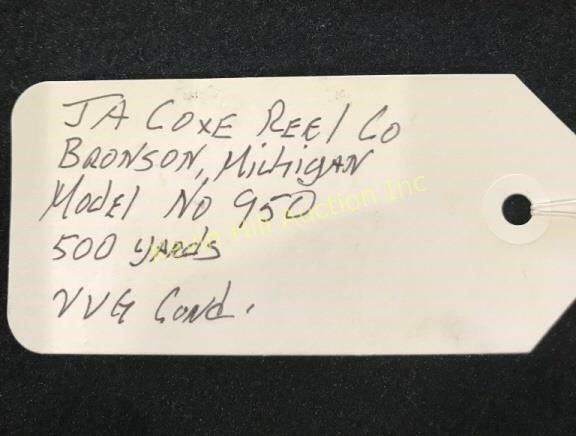 JA COXE REEl CO
BRONSON, MichigAN
Model No 950
500 yARds
VVG Cond.
Hill Auction Inc